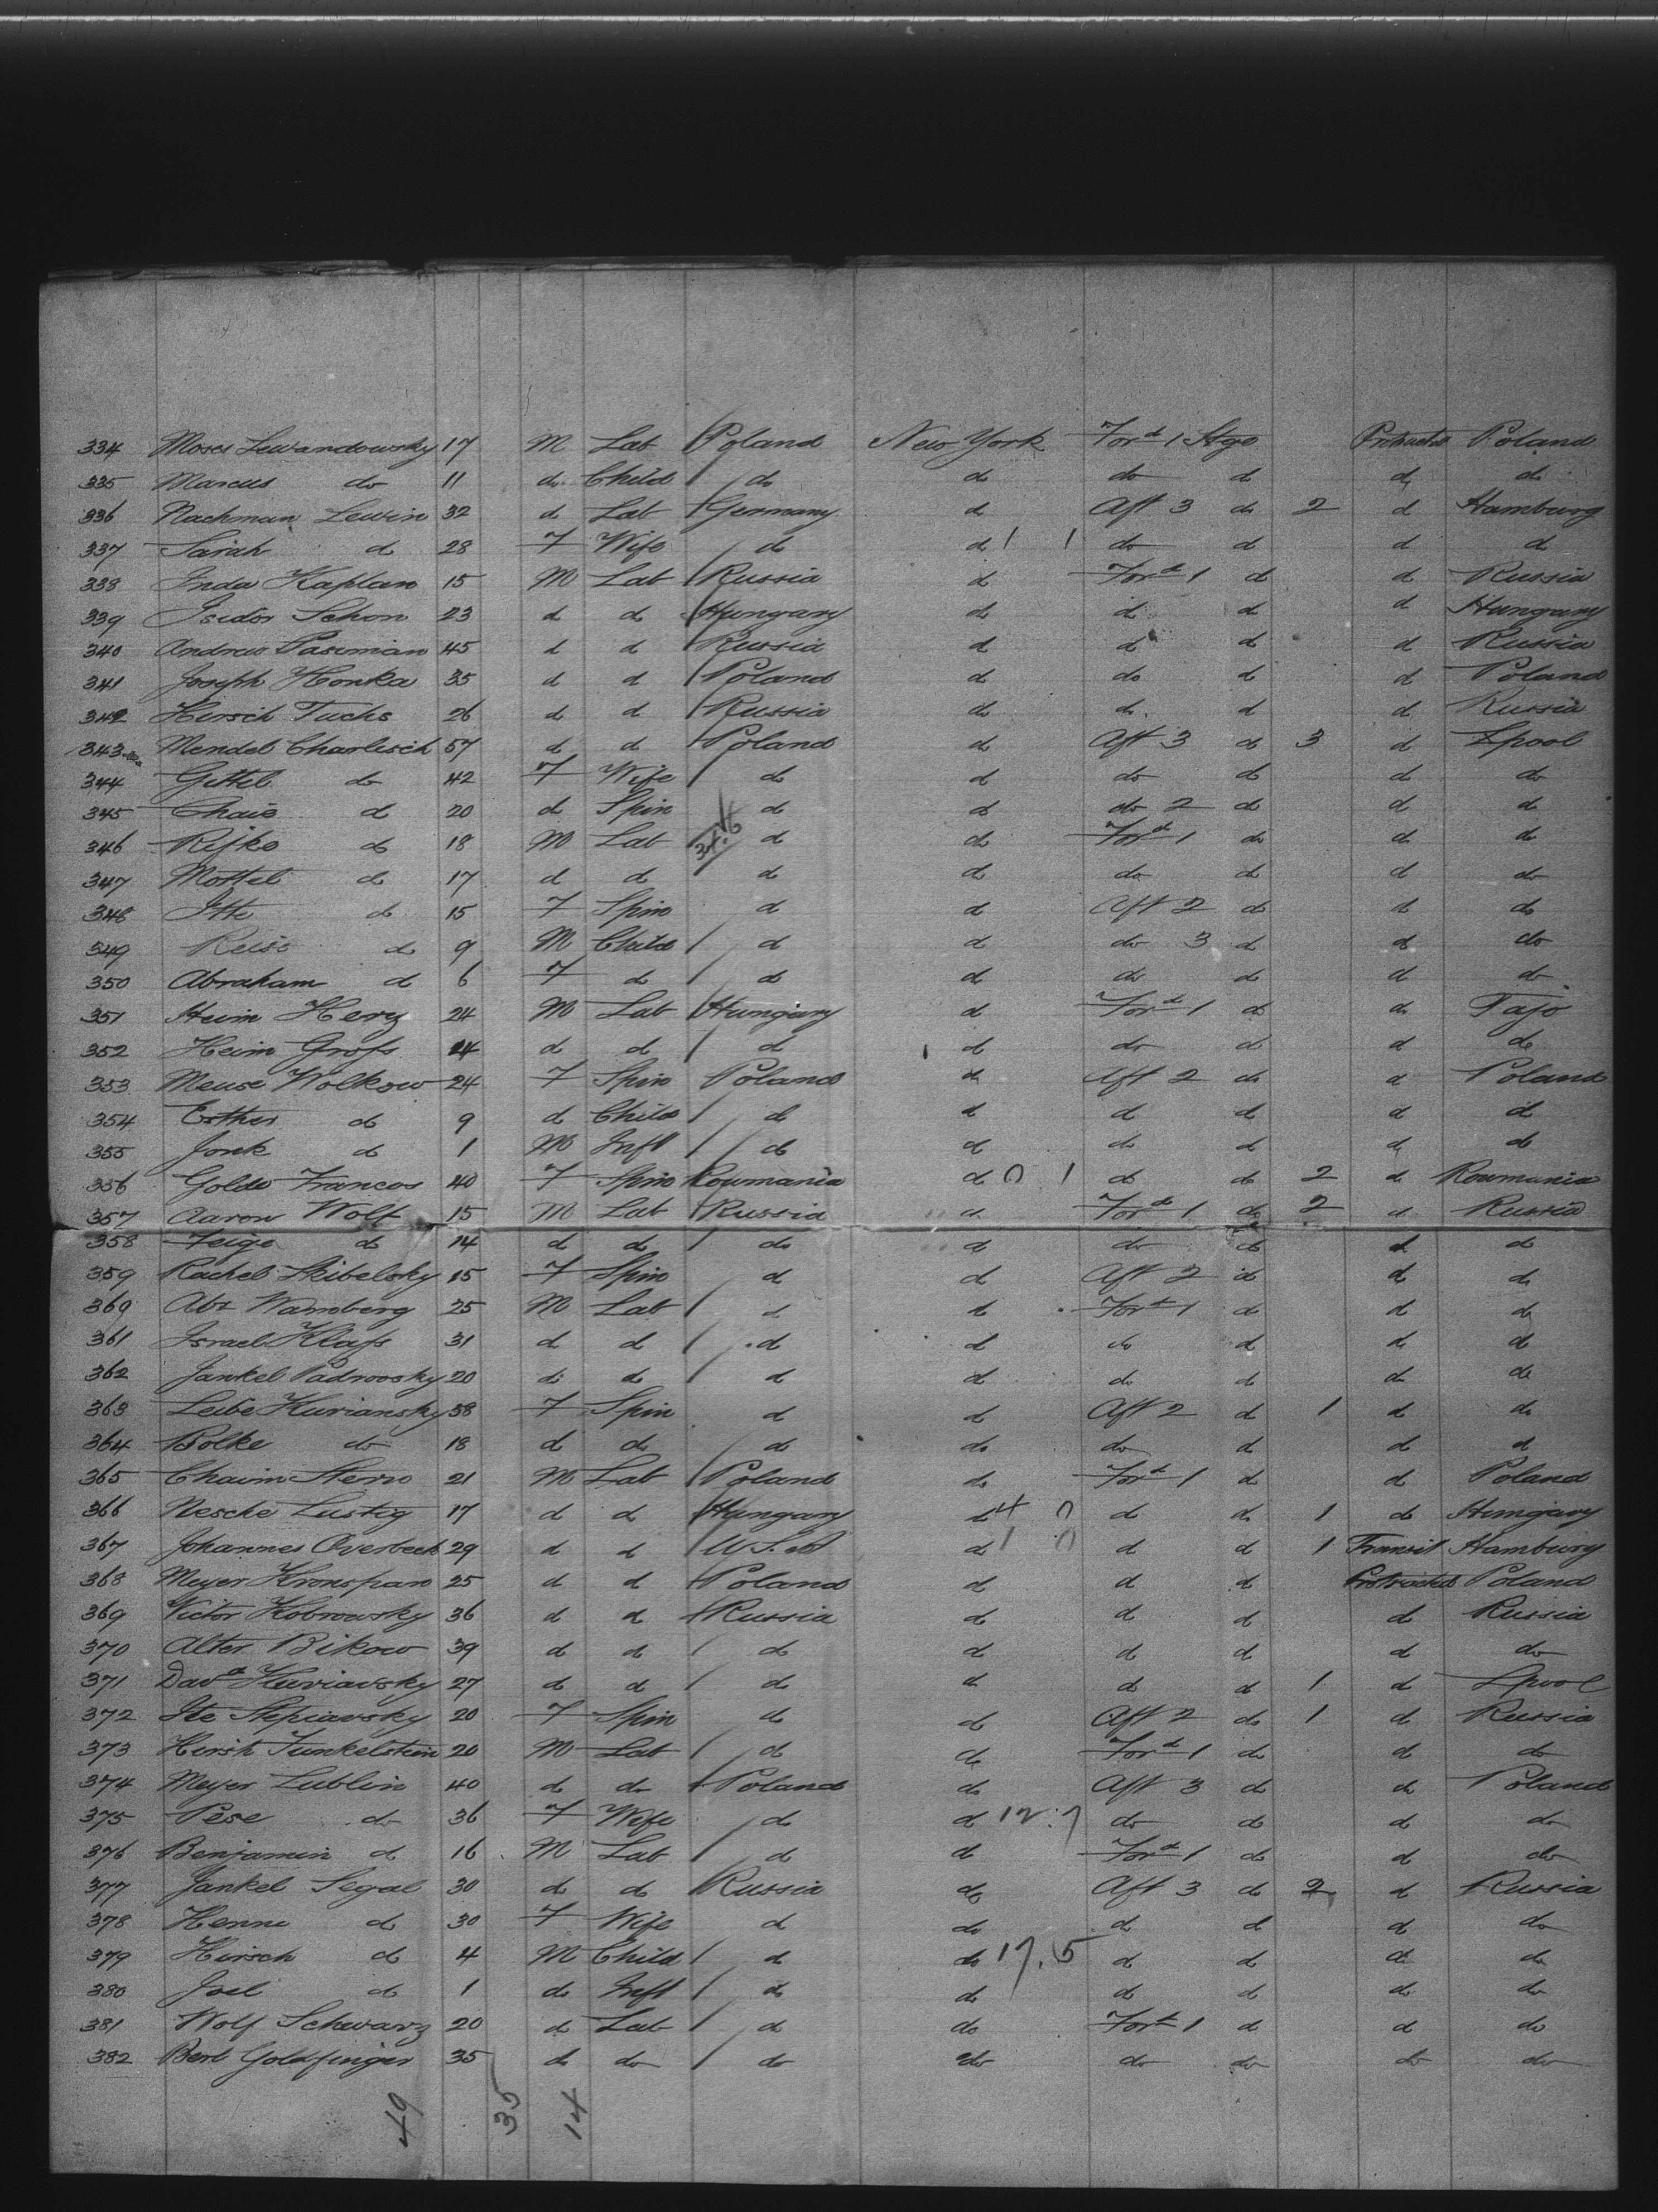 334 Moses Lewandowsky 17 M Lab Poland New York For^d 1 Stge Protracted Poland
335 Marcus do 11 do Child / do do do do do do
336 Nachman Lewin 32 d Lab / Germany d Aft 3 do 2 d Hamburg
337 Sarah d 28 F Wife / d d 1 1 do d d d
338 Inda Kaplan 15 M Lab / Russia d For^d 1 d d Russia
339 Isidor Schon 23 d d / Hungary d d d d Hungary
340 Andrew Pasiman 45 d d / Russia d d d d Russia
341 Joseph Honka 35 d d / Poland d do d d Poland
342 Hirsch Fuchs 26 d d / Russia do do d d Russia
343 Mendel Charlisch 57 d d / Poland d Aft 3 d 3 d Lpool
344 Gittel do 42 F Wife / do d do do d do
345 Chaie d 20 d Spin d d do 2 d d d
346 Rifke do 18 M Lab d d For^d 1 do d d
347 Mottel d 17 d d d d do d d do
348 Itte d 15 F Spin d d Aft 2 d d do
349 Reiss d 9 M Child / d d do 3 d d do
350 Abraham d 6 F d / d d do d d do
351 Heim Herz 24 M Lab / Hungary d For^d 1 d do Tajo
352 Heim Gross 24 d d / d d do d d do
353 Meuse Wolkow 24 F Spin Poland d Aft 2 do d Poland
354 Esther do 9 d Child / d d d d d d
355 Jonk do 1 M Inft / do d do d d do
356 Golde Francos 40 F Spin Roumania d 0 1 d do 2 d Roumania
357 Aaron Wolf 15 M Lab / Russia d For^d 1 do 2 d Russia
358 Feige do 14 d d / do d do do d d
359 Rachel Skibelsky 15 F Spin d d Aft 2 d d d
360 Abr Wamberg 25 M Lab / d d For^d 1 d d d
361 Israel Klass 31 d d / d d do d d d
362 Jankel Padrovsky 20 d d / d d do d d do
363 Leibe Kuriansky 58 F Spin d d Aft 2 d 1 d d
364 Bolke do 18 d d / d do do d d d
365 Chaim Stern 21 M Lab / Poland do For^d 1 d d Poland
366 Nesche Lustig 17 d d / Hungary d 4 0 d do 1 do Hungary
367 Johannes Overbeck 29 d d / U.S. d 1 0 d d 1 Transit Hamburg
368 Meyer Kronspan 25 d d / Poland d d d Protracted Poland
369 Victor Kobrowsky 36 d d / Russia d d d d Russia
370 Alter Bikow 39 d d / do d d d d do
371 Dav^d Kuriavsky 27 d d / d d d d 1 d Lpool
372 Ite Stepiavsky 20 F Spin do d Aft 2 do 1 d Russia
373 Hirsh Funkelstein 20 M Lab / d d For^d 1 do d do
374 Meyer Lublin 40 d do / Poland do Aft 3 do do Poland
375 Pese do 36 F Wife / d d 12.7 do do d do
376 Benjamin d 16 M Lab / d d For^d 1 do d do
377 Jankel Segal 30 d d / Russia d Aft 3 d 2 d Russia
378 Henni d 30 F Wife d do d d d do
379 Hirsch d 4 M Child / d do 17.5 d d d do
380 Joel d 1 do Inft / do do d d do do
381 Wolf Schwarz 20 d Lab / d do For^d 1 d d do
382 Berl Goldfinger 35 do do / do do do do do do
49 35 14